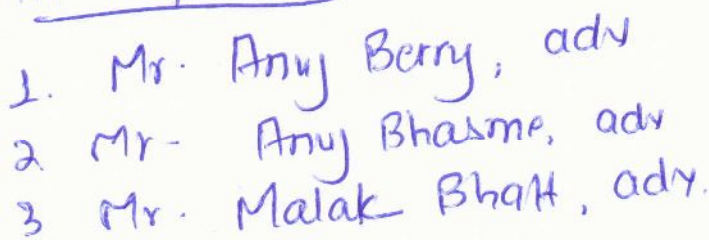 1. Mr. Anuj Berry, adv
2 Mr- Anuj Bhasme, adv
3 Mr. Malak Bhatt, adv.